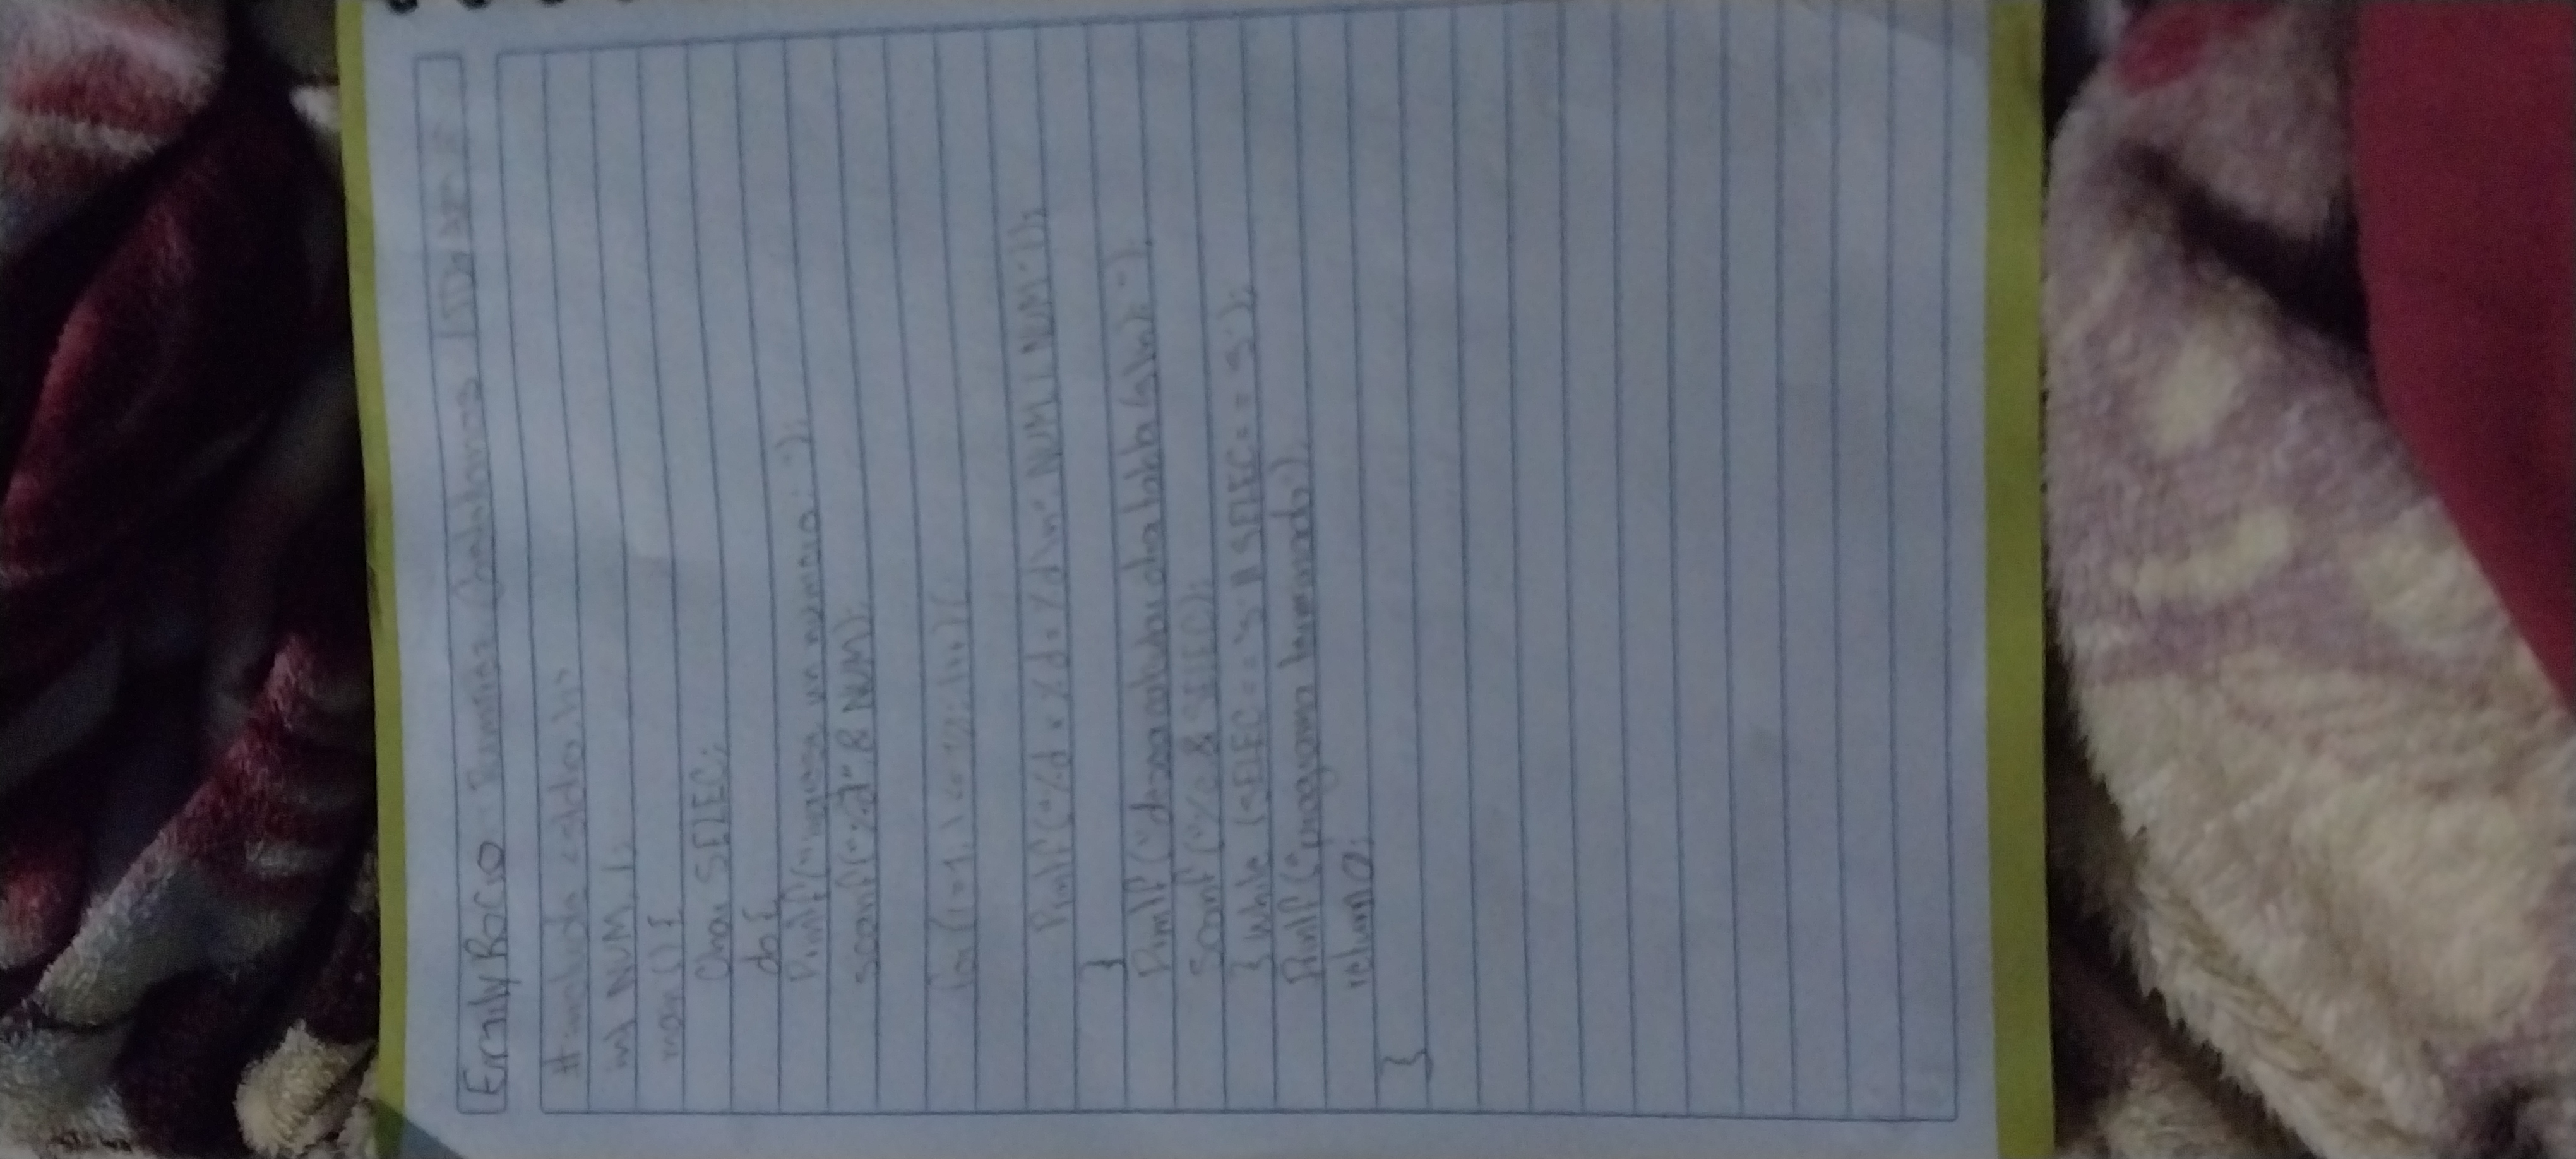 Emily Rocio Ramirez
#include <stdio.h>
int NUM, I;
main () {
Char SELEC;
do {
Printf ("ingresa un numero: ");
scanf ("%d", & NUM);
for (I=1; I <= 12; I++) {
Printf ("%d x %d = %d\n", NUM, I, NUM * I);
}
Printf ("desea otra tabla (s/n): ");
Scanf ("%c & SELEC);
} while (SELEC == 's' || SELEC == 'S');
Printf ("programa terminado");
return 0;
}